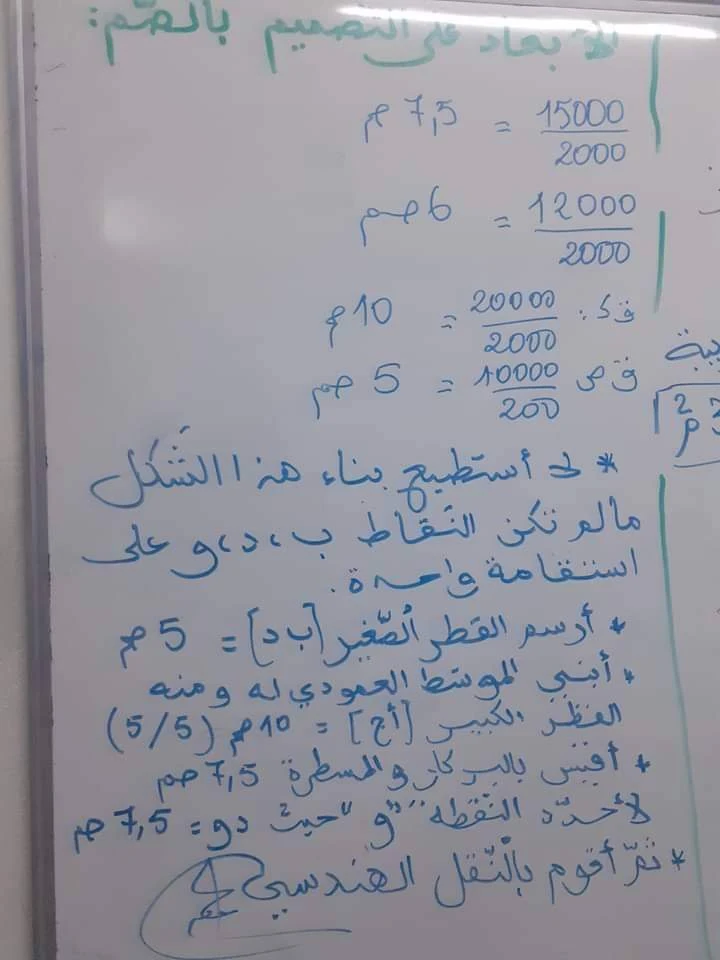 الأبعاد على التصميم بالصّم:
15000/2000 = 7,5 صم
12000/2000 = 6 صم
ق ك: 20000/2000 = 10 صم
ق ص 10000/200 = 5 صم
* لا أستطيع بناء هذا الشّكل
مالم تكن النّقاط ب، د، و على
استقامة واحدة.
* أرسم القطر الصّغير [ب د] = 5 صم
* أبني الموسّط العمودي له ومنه
القطر الكبير [أج] = 10 صم (5/5)
* أقيس بالبركار والمسطرة 7,5 صم
لأحدّد النّقطة "و" حيث دو = 7,5 صم
* ثمّ أقوم بالنّقل الهندسي
ية
م²